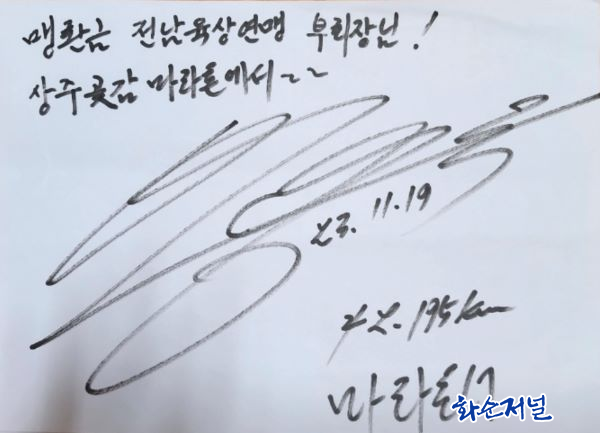 맹환금 전남육상연맹 부회장님!
상주곶감 마라톤에서~~
23. 11.19
42.195km
마라톤
화순저널